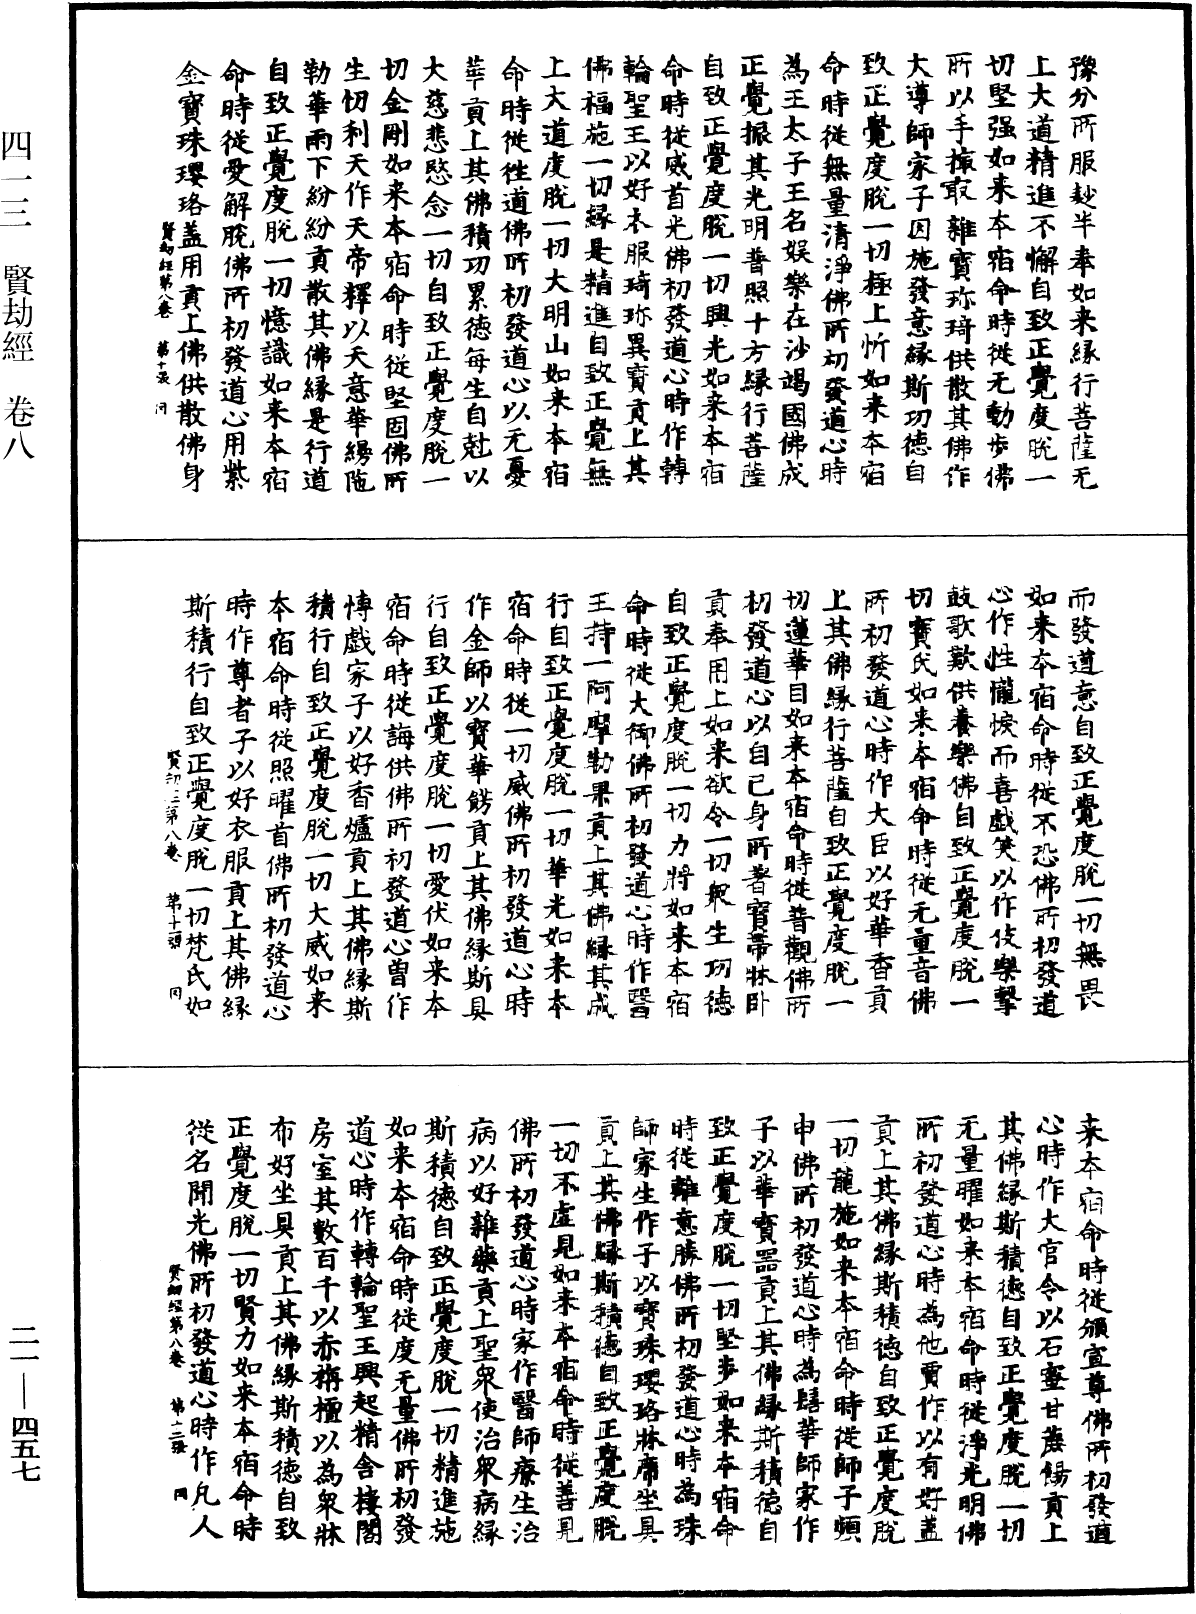 四一三　賢劫經　卷八
豫分所服𤚥半奉如来緣行菩薩无
上大道精進不懈自致正覺度脫一
切堅强如来本宿命時從无動步佛
所以手撮取雜寶珎琦供散其佛作
大導師家子因施發意緣斯功德自
致正覺度脫一切極上忻如来本宿
命時從無量清淨佛所初發道心時
為王太子王名娛樂在沙竭國佛成
正覺振其光明普照十方緣行菩薩
自致正覺度脫一切興光如来本宿
命時從威首光佛初發道心時作轉
輪聖王以好衣服琦珎異寶貢上其
佛福施一切緣是精進自致正覺無
上大道度脫一切大明山如来本宿
命時從往道佛所初發道心以无憂
華貢上其佛積功累德每生自尅以
大慈悲愍念一切自致正覺度脫一
切金剛如来本宿命時從堅固佛所
生忉利天作天帝釋以天意華繽陁
勒華雨下紛紛貢散其佛緣是行道
自致正覺度脫一切憶識如来本宿
命時從愛解脫佛所初發道心用紫
金寶珠瓔珞蓋用貢上佛供散佛身
賢劫經第八卷　第十張　同
而發道意自致正覺度脫一切無畏
如来本宿命時從不恐佛所初發道
心作性𢤱悷而喜戲笑以作伎樂擊
鼓歌歎供養樂佛自致正覺度脫一
切寶氏如来本宿命時從无量音佛
所初發道心時作大臣以好華香貢
上其佛緣行菩薩自致正覺度脫一
切蓮華目如来本宿命時從普觀佛所
初發道心以自己身所著寶帶牀卧
貢奉用上如来欲令一切衆生功德
自致正覺度脫一切力將如来本宿
命時從大御佛所初發道心時作醫
王持一阿摩勒果貢上其佛緣其成
行自致正覺度脫一切華光如来本
宿命時從一切威佛所初發道心時
作金師以寶華鎊貢上其佛緣斯具
行自致正覺度脫一切愛伏如来本
宿命時從誨供佛所初發道心曾作
慱戲家子以好香爐貢上其佛緣斯
積行自致正覺度脫一切大威如来
本宿命時從照曜首佛所初發道心
時作尊者子以好衣服貢上其佛緣
斯積行自致正覺度脫一切梵氏如
賢劫經第八卷　第十一張　同
来本宿命時從頒宣尊佛所初發道
心時作大官令以石蜜甘蔗餳貢上
其佛緣斯積德自致正覺度脫一切
无量曜如来本宿命時從淨光明佛
所初發道心時為他賈作以有好蓋
貢上其佛緣斯積德自致正覺度脫
一切龍施如来本宿命時從師子頻
申佛所初發道心時為鬘華師家作
子以華寶器貢上其佛緣斯積德自
致正覺度脫一切堅步如来本宿命
時從離意勝佛所初發道心時為珠
師家生作子以寶珠瓔珞牀席坐具
貢上其佛緣斯積德自致正覺度脫
一切不虛見如来本宿命時從善見
佛所初發道心時家作醫師療生治
病以好雜藥貢上聖衆使治衆病緣
斯積德自致正覺度脫一切精進施
如来本宿命時從度无量佛所初發
道心時作轉輪聖王興起精舍棲閣
房室其數百千以赤栴檀以為衆牀
布好坐具貢上其佛緣斯積德自致
正覺度脫一切賢力如来本宿命時
從名聞光佛所初發道心時作凡人
賢劫經第八卷　第十二張　同
二一—四五七